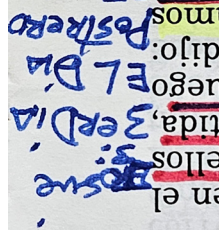 en el
ellos
tida,
uego
dijo:
amos
Josue
3:
3er DIA
EL DIA
POSTRERO